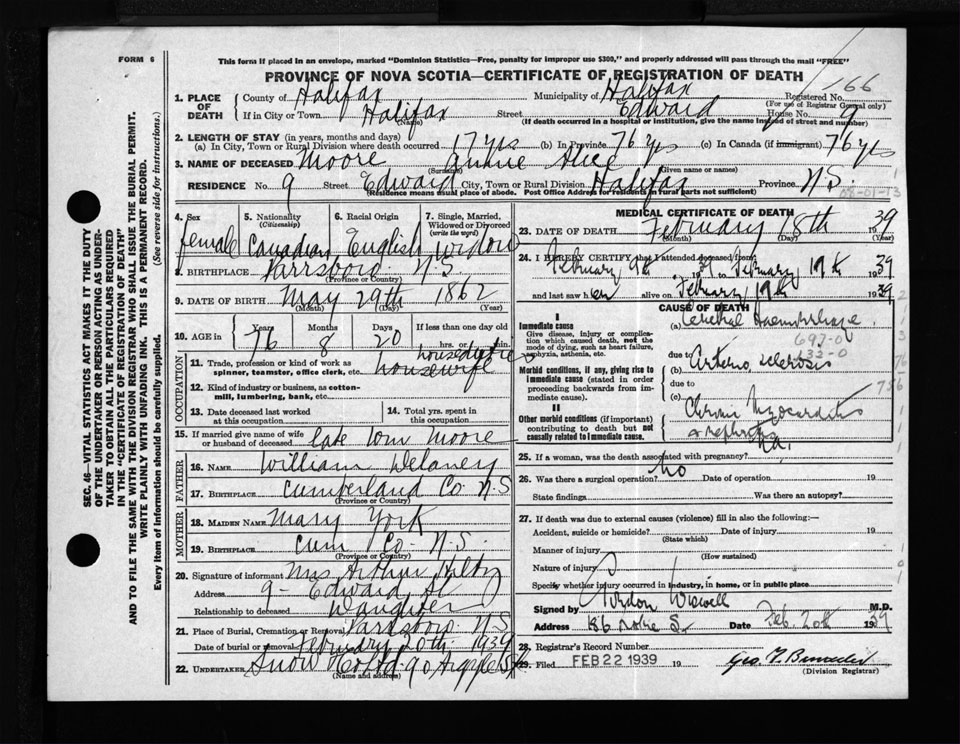 FORM 6
This form if placed in an envelope, marked "Dominion Statistics—Free, penalty for improper use $300," and properly addressed will pass through the mail "FREE"
PROVINCE OF NOVA SCOTIA—CERTIFICATE OF REGISTRATION OF DEATH
66
1. PLACE OF DEATH
County of Halifax Municipality of Halifax Registered No.
(For use of Registrar General only)
If in City or Town Halifax Street Edward House No. 9
(Name) (If death occurred in a hospital or institution, give the name instead of street and number)
2. LENGTH OF STAY (in years, months and days)
(a) In City, Town or Rural Division where death occurred 17 yrs (b) In Province 76 yrs (c) In Canada (if immigrant) 76 yrs
3. NAME OF DECEASED Moore Annie Alice
(Surname) (Given name or names)
RESIDENCE No. 9 Street Edward City, Town or Rural Division Halifax Province N.S.
(Residence means usual place of abode. Post Office Address for residents in rural parts not sufficient)
4. Sex 5. Nationality (Citizenship) 6. Racial Origin 7. Single, Married, Widowed or Divorced (write the word)
female Canadian English widow
8. BIRTHPLACE Parrsboro N.S.
(Province or Country)
9. DATE OF BIRTH May 29th 1862
(Month) (Day) (Year)
10. AGE in Years Months Days If less than one day old
76 8 20 hrs. or min.
OCCUPATION
11. Trade, profession or kind of work as spinner, teamster, office clerk, etc. household duties
housewife
12. Kind of industry or business, as cotton-mill, lumbering, bank, etc.
13. Date deceased last worked at this occupation
14. Total yrs. spent in this occupation
15. If married give name of wife or husband of deceased late Tom Moore
FATHER
16. NAME William Delaney
17. BIRTHPLACE Cumberland Co N.S
(Province or Country)
MOTHER
18. MAIDEN NAME Mary York
19. BIRTHPLACE Cum Co. N.S.
(Province or Country)
20. Signature of informant Mrs Arthur
Address 9 - Edward St
Relationship to deceased Daughter
21. Place of Burial, Cremation or Removal Parrsboro N.S
Date of burial or removal February 20th 1939
22. UNDERTAKER Snow & Co Ltd 90 Argyle St
(Name and address)
MEDICAL CERTIFICATE OF DEATH
23. DATE OF DEATH February 18th 1939
(Month) (Day) (Year)
24. I HEREBY CERTIFY that I attended deceased from
February 9th 1939 to February 19th 1939
and last saw her alive on February 19th 1939
CAUSE OF DEATH
I
Immediate cause
Give disease, injury or complication which caused death, not the mode of dying, such as heart failure, asphyxia, asthenia, etc.
(a) Cerebral Haemorrhage
due to
Morbid conditions, if any, giving rise to immediate cause (stated in order proceeding backwards from immediate cause).
(b) Arterio sclerosis
due to
(c)
II
Other morbid conditions (if important) contributing to death but not causally related to immediate cause.
Chronic Myocarditis
& nephritis
25. If a woman, was the death associated with pregnancy? No.
26. Was there a surgical operation? No Date of operation 19
State findings Was there an autopsy?
27. If death was due to external causes (violence) fill in also the following:—
Accident, suicide or homicide? Date of injury 19
(State which)
Manner of injury
(How sustained)
Nature of injury
Specify whether injury occurred in industry, in home, or in public place
Signed by Gordon Wiswell M.D.
Address 186 Date Feb. 20th 1939
28. Registrar's Record Number
29. Filed FEB 22 1939 19
(Division Registrar)
SEC. 46—VITAL STATISTICS ACT MAKES IT THE DUTY OF THE UNDERTAKER OR PERSON ACTING AS UNDERTAKER TO OBTAIN ALL THE PARTICULARS REQUIRED IN THE "CERTIFICATE OF REGISTRATION OF DEATH" AND TO FILE THE SAME WITH THE DIVISION REGISTRAR WHO SHALL ISSUE THE BURIAL PERMIT.
WRITE PLAINLY WITH UNFADING INK. THIS IS A PERMANENT RECORD.
Every item of information should be carefully supplied. (See reverse side for instructions.)